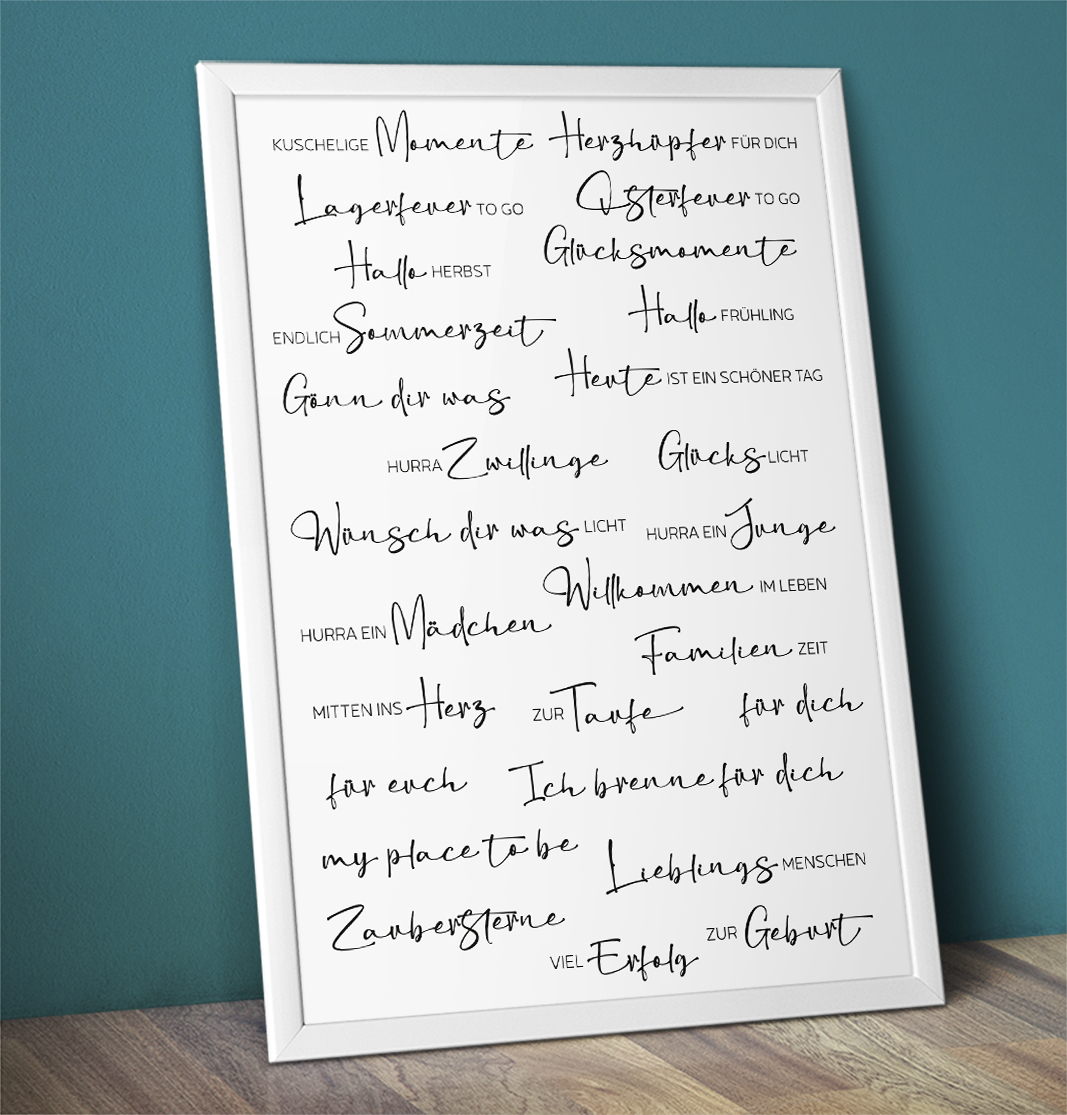 KUSCHELIGE Momente
Herzhüpfer FÜR DICH
Lagerfeuer TO GO
Osterfeuer TO GO
Hallo HERBST
Glücksmomente
ENDLICH Sommerzeit
Hallo FRÜHLING
Gönn dir was
Heute IST EIN SCHÖNER TAG
HURRA Zwillinge
Glücks LICHT
Wünsch dir was LICHT
HURRA EIN Junge
Willkommen IM LEBEN
HURRA EIN Mädchen
Familien ZEIT
MITTEN INS Herz
ZUR Taufe
für dich
für euch
Ich brenne für dich
my place to be
Lieblings MENSCHEN
Zaubersterne
ZUR Geburt
VIEL Erfolg